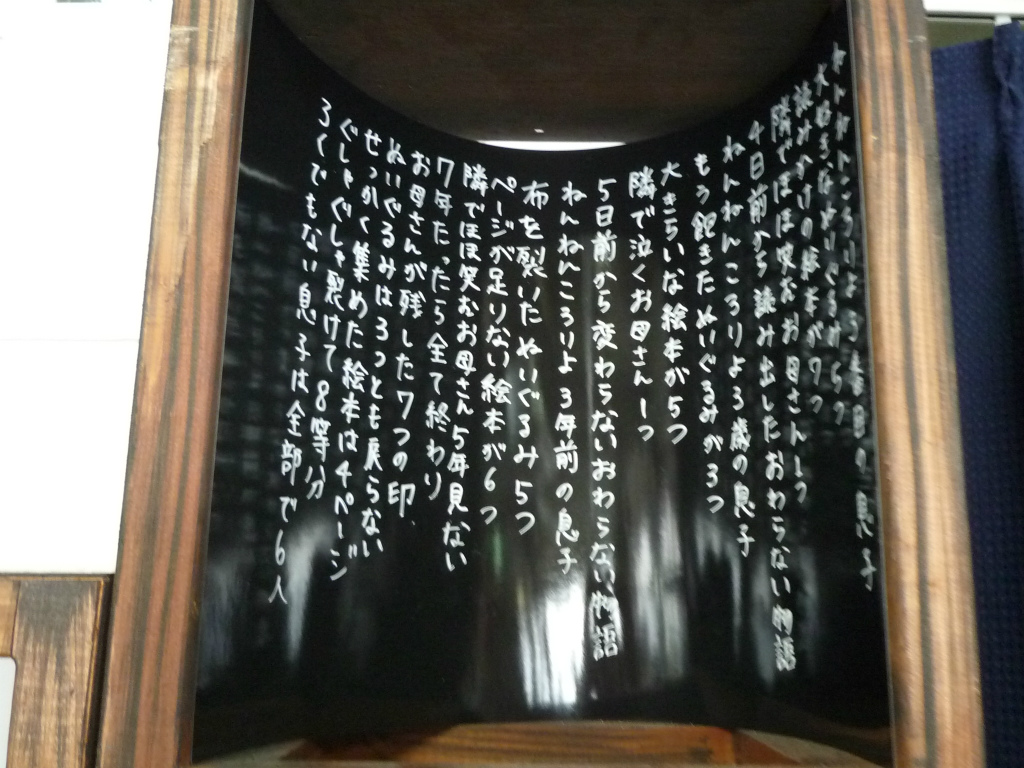 ねんねんころりよ 子番目の息子
大好きなぬいぐるみ 5つ
読みかけの絵本が7つ
隣でほほ笑むお母さん1つ
4日前から読み出したおわらない物語
ねんねんころりよ3歳の息子
もう飽きたぬいぐるみが3つ
大きらいな絵本が5つ
隣で泣くお母さん1つ
5日前から変わらないおわらない物語
ねんねんころりよ3年前の息子
布を裂いたぬいぐるみ5つ
ページが足りない絵本が6つ
隣でほほ笑むお母さん5年見ない
7年たったら全て終わり
お母さんが残した7つの印
ぬいぐるみは3つとも戻らない
せっかく集めた絵本は4ページ
ぐしゃぐしゃ裂けて8等分
ろくでもない息子は全部で6人